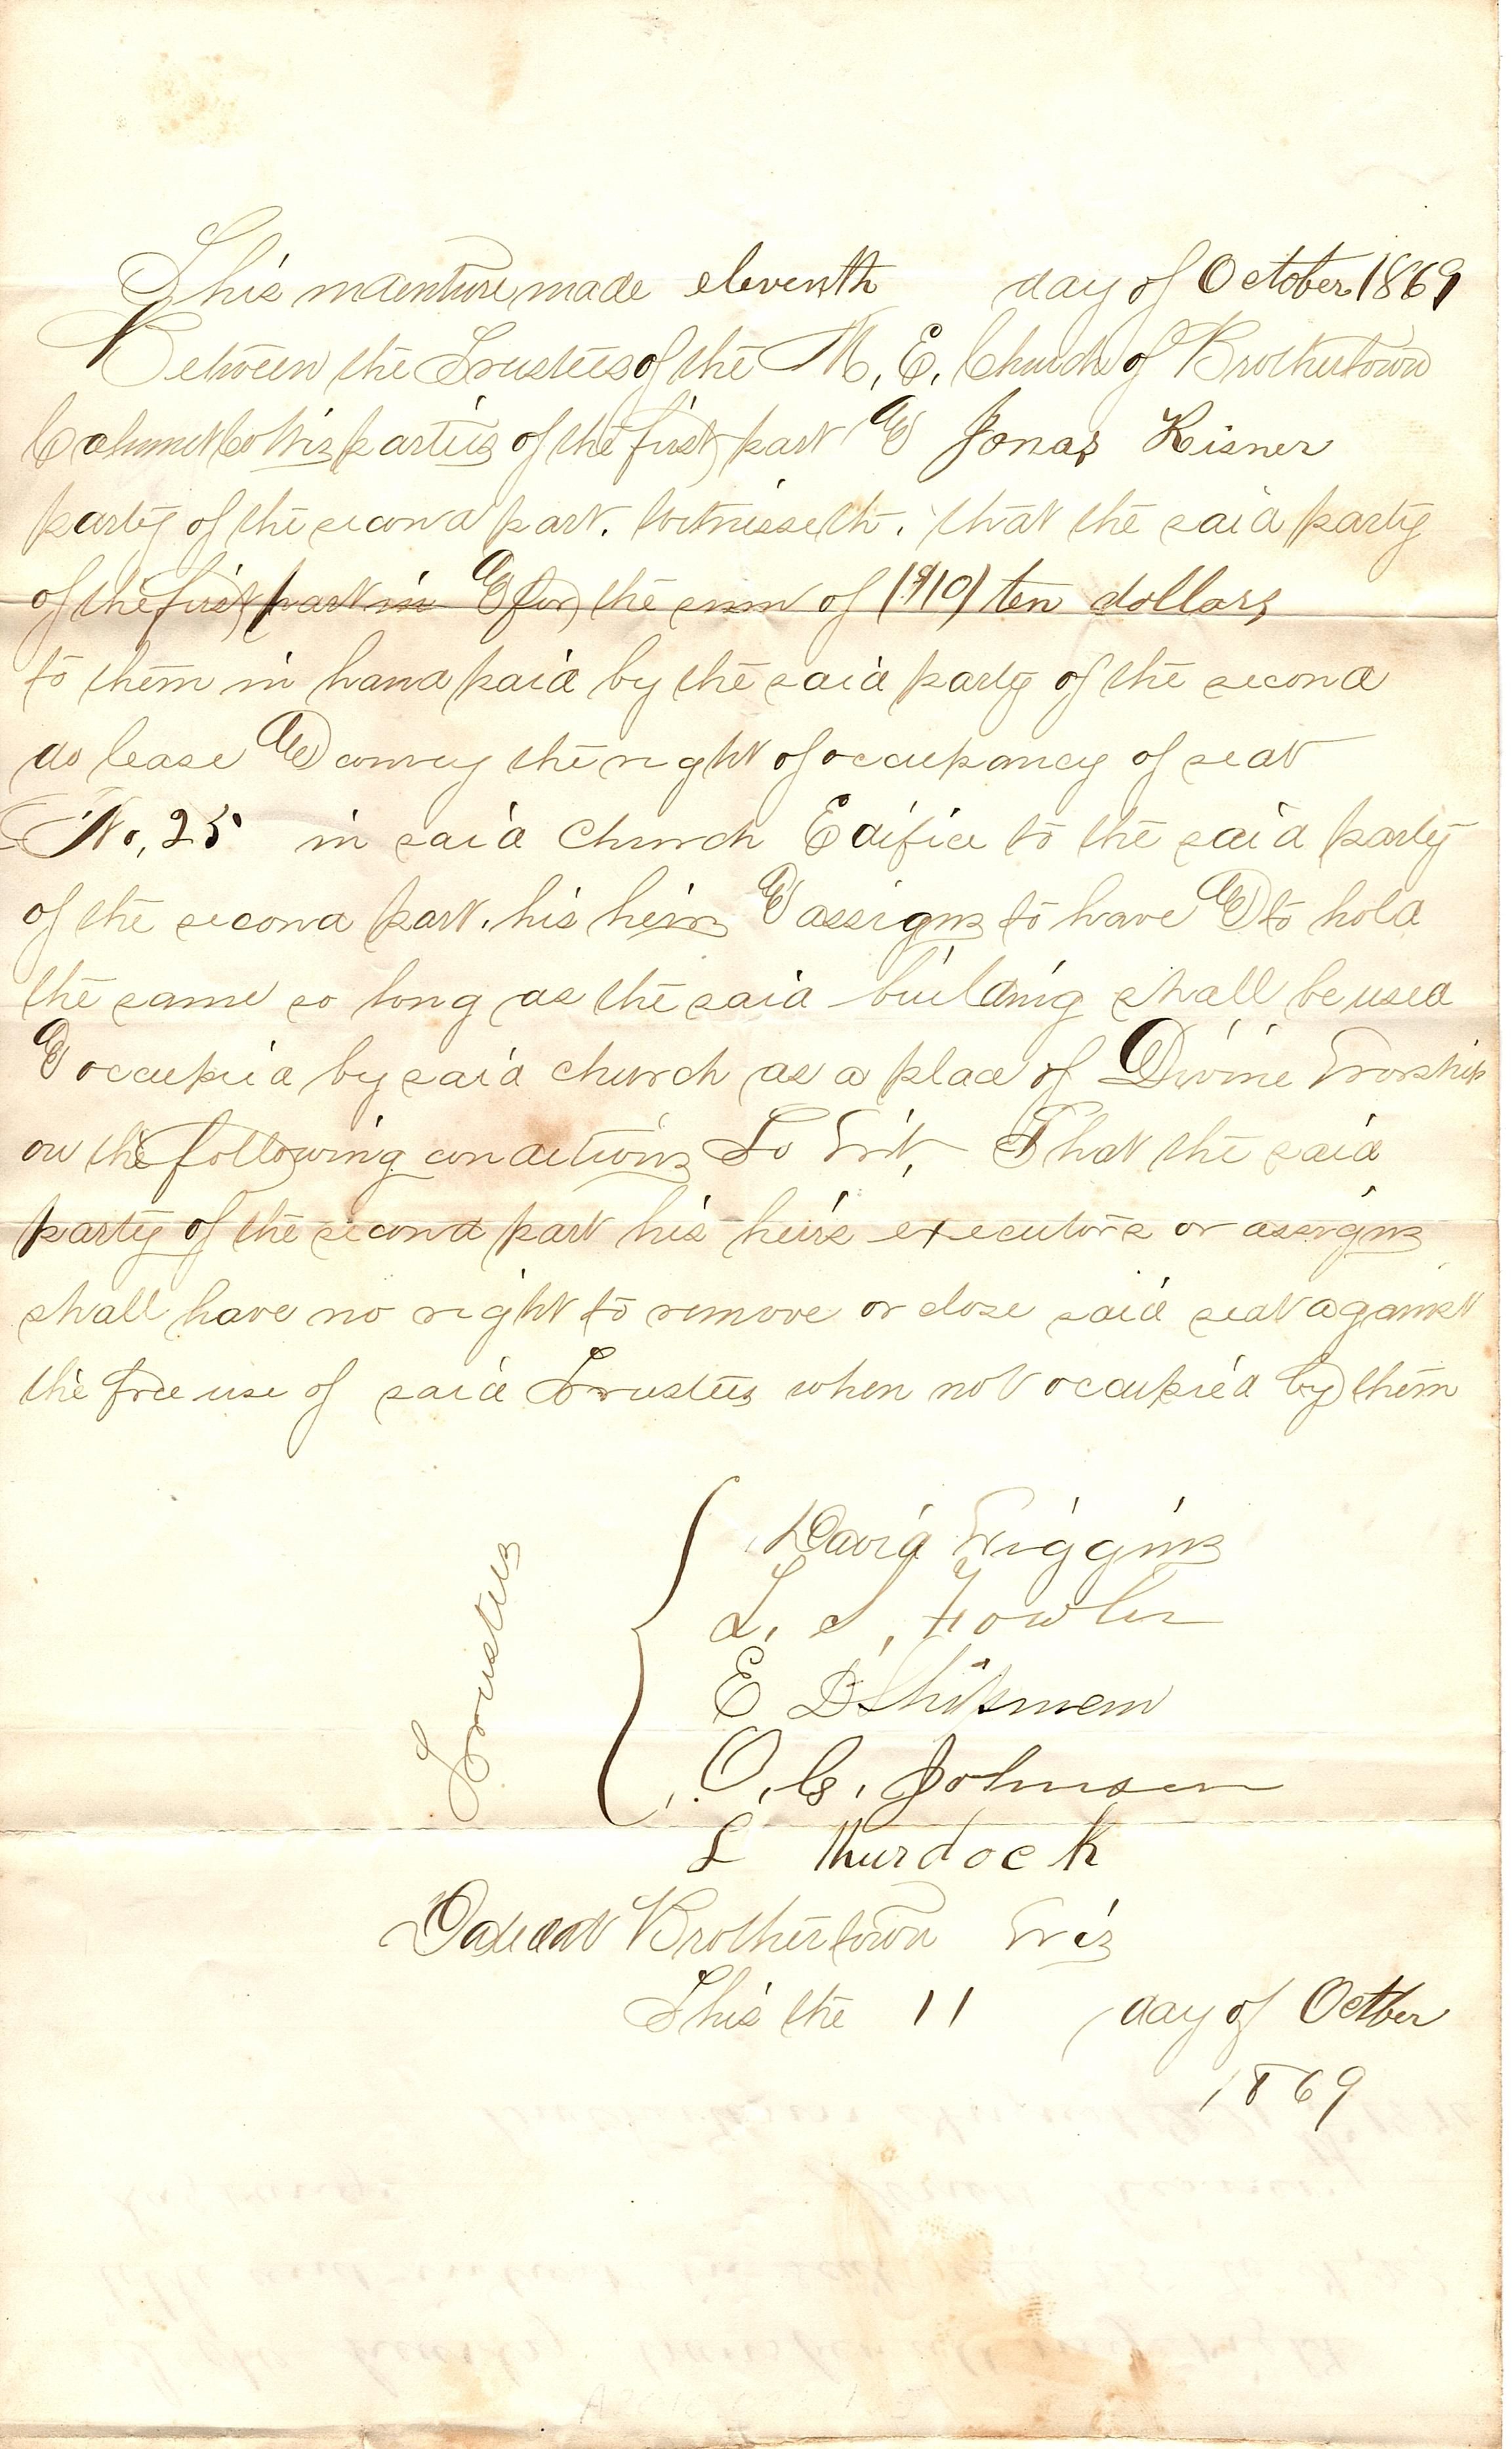 This indenture made eleventh day of October 1869
Between the Trustees of the M. E. Church of Brothertown
Calumet Co Wis parties of the first part & Jonas Kisner
party of the second part. Witnesseth. that the said party
of the first part in & for the sum of ($10) ten dollars
to them in hand paid by the said party of the second
do lease & convey the right of occupancy of seat
No. 25 in said Church Edifice to the said party
of the second part. his heirs & assigns to have & to hold
the same so long as the said building shall be used
& occupied by said church as a place of Divine Worship
on the following conditions To Wit, That the said
party of the second part his heirs executors or assigns
shall have no right to remove or close said seat against
the free use of said Trustees when not occupied by them
Trustees
David Wiggins
L. S. Fowler
E D Shipman
O. C. Johnson
L Murdock
Dated at Brothertown Wis
This the 11 day of Octber
1869